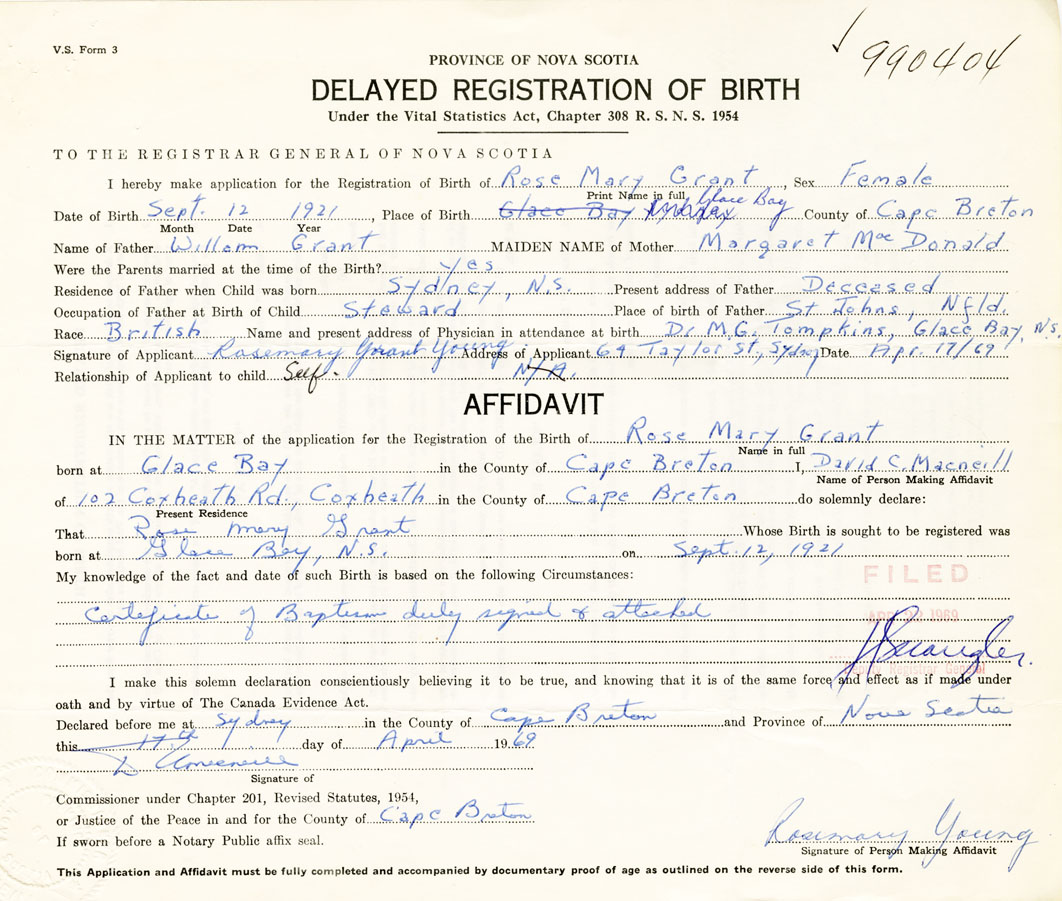 V.S. Form 3
990404
PROVINCE OF NOVA SCOTIA
DELAYED REGISTRATION OF BIRTH
Under the Vital Statistics Act, Chapter 308 R. S. N. S. 1954
TO THE REGISTRAR GENERAL OF NOVA SCOTIA
I hereby make application for the Registration of Birth of Rose Mary Grant, Sex Female
Print Name in full
Date of Birth Sept. 12 1921, Place of Birth Glace Bay Glace Bay County of Cape Breton
Month Date Year
Name of Father Willem Grant MAIDEN NAME of Mother Margaret Mac Donald
Were the Parents married at the time of the Birth? yes
Residence of Father when Child was born Sydney, N.S. Present address of Father Deceased
Occupation of Father at Birth of Child Steward Place of birth of Father St Johns, Nfld.
Race British Name and present address of Physician in attendance at birth Dr M.G. Tompkins, Glace Bay, N.S.
Signature of Applicant Rosemary Grant Young Address of Applicant 64 Taylor St., Sydney Date Apr. 17/69
Relationship of Applicant to child Self. N/A.
AFFIDAVIT
IN THE MATTER of the application for the Registration of the Birth of Rose Mary Grant
Name in full
born at Glace Bay in the County of Cape Breton I, David C. Macneill
Name of Person Making Affidavit
of 102 Coxheath Rd., Coxheath in the County of Cape Breton do solemnly declare:
Present Residence
That Rose Mary Grant Whose Birth is sought to be registered was
born at Glace Bay, N.S. on Sept. 12, 1921
My knowledge of the fact and date of such Birth is based on the following Circumstances:
FILED
Certificate of Baptism duly signed & attached
1969
Registrar General
I make this solemn declaration conscientiously believing it to be true, and knowing that it is of the same force and effect as if made under
oath and by virtue of The Canada Evidence Act.
Declared before me at Sydney in the County of Cape Breton and Province of Nova Scotia
this 17th day of April 1969
Signature of
Commissioner under Chapter 201, Revised Statutes, 1954,
or Justice of the Peace in and for the County of Cape Breton
If sworn before a Notary Public affix seal.
Rosemary Young
Signature of Person Making Affidavit
This Application and Affidavit must be fully completed and accompanied by documentary proof of age as outlined on the reverse side of this form.